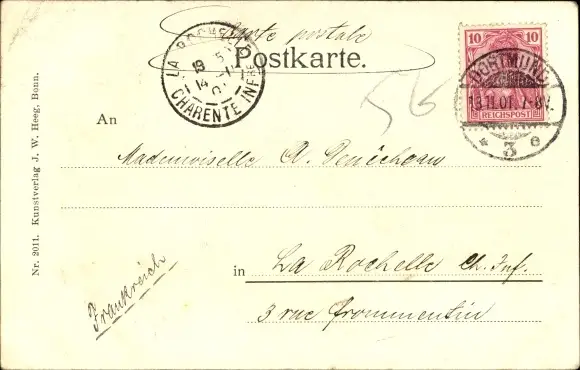 Carte postale
Postkarte.
LA ROCHELLE
14
CHARENTE INFRE
56
10 10
DORTMUND
13.11.01. 7-8V.
REICHSPOST
* 3 e
An
Mademoiselle A.
in La Rochelle Ch. Inf.
3 rue Fromentin
Frankreich
Nr. 2011. Kunstverlag J. W. Heeg, Bonn.